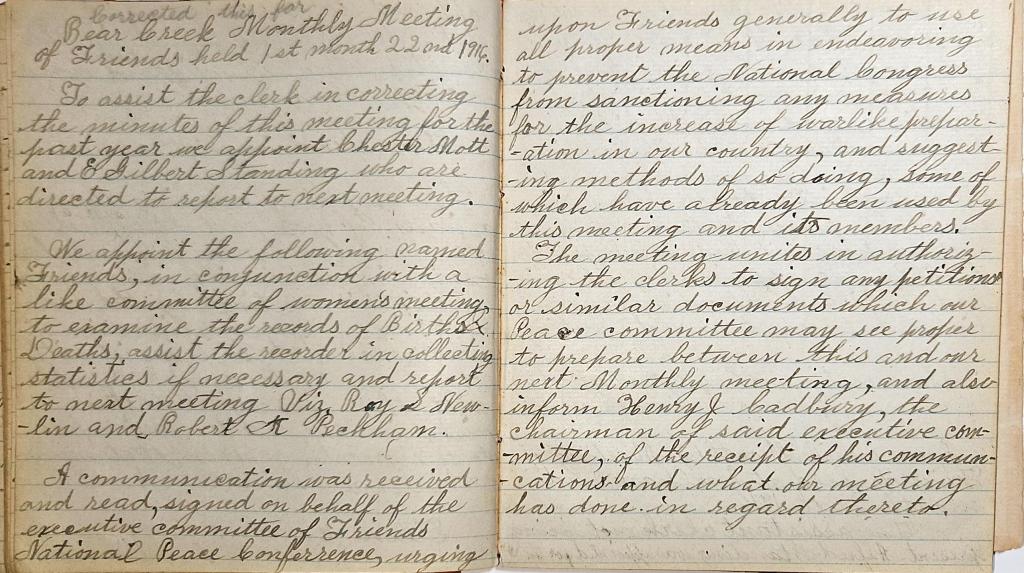 Corrected this far
Bear Creek Monthly Meeting
of Friends held 1st month 22nd 1916.
To assist the clerk in correcting
the minutes of this meeting for the
past year we appoint Chester Mott
and E Gilbert Standing who are
directed to report to next meeting.
We appoint the following named
Friends, in conjunction with a
like committee of womens meeting
to examine the records of Births &
Deaths, assist the recorder in collecting
statistics if necessary and report
to next meeting Viz, Roy L New-
-lin and Robert A Peckham.
A communication was received
and read, signed on behalf of the
executive committee of Friends
National Peace Conferrence, urging
upon Friends generally to use
all proper means in endeavoring
to prevent the National Congress
from sanctioning any measures
for the increase of warlike prepar-
-ation in our country, and suggest-
-ing methods of so doing, some of
which have already been used by
this meeting and its members.
The meeting unites in authoriz-
-ing the clerks to sign any petitions
or similar documents which our
Peace committee may see proper
to prepare between this and our
next Monthly meeting, and also
inform Henry J Cadbury, the
chairman of said executive com-
-mittee, of the receipt of his commun-
-cations and what our meeting
has done in regard thereto.